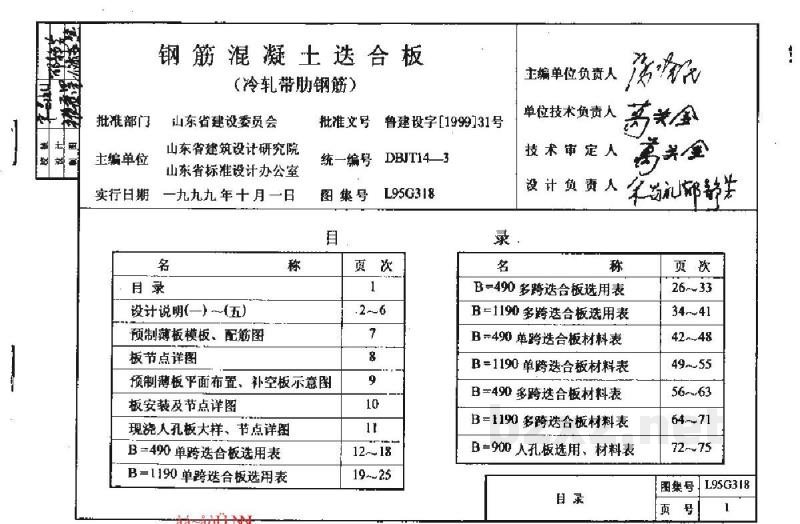 钢筋混凝土迭合板
(冷轧带肋钢筋)
批准部门 山东省建设委员会 批准文号 鲁建设字[1999]31号
主编单位 山东省建筑设计研究院 山东省标准设计办公室 统一编号 DBJT14—3
实行日期 一九九九年十月一日 图集号 L95G318
主编单位负责人
单位技术负责人
技术审定人
设计负责人
校核
设计
制图
目录
名称 页次
目录 1
设计说明(一)~(五) 2~6
预制薄板模板、配筋图 7
板节点详图 8
预制薄板平面布置、补空板示意图 9
板安装及节点详图 10
现浇人孔板大样、节点详图 11
B=490单跨迭合板选用表 12~18
B=1190单跨迭合板选用表 19~25
名称 页次
B=490多跨迭合板选用表 26~33
B=1190多跨迭合板选用表 34~41
B=490单跨迭合板材料表 42~48
B=1190单跨迭合板材料表 49~55
B=490多跨迭合板材料表 56~63
B=1190多跨迭合板材料表 64~71
B=900人孔板选用、材料表 72~75
目录 图集号 L95G318
页号 1